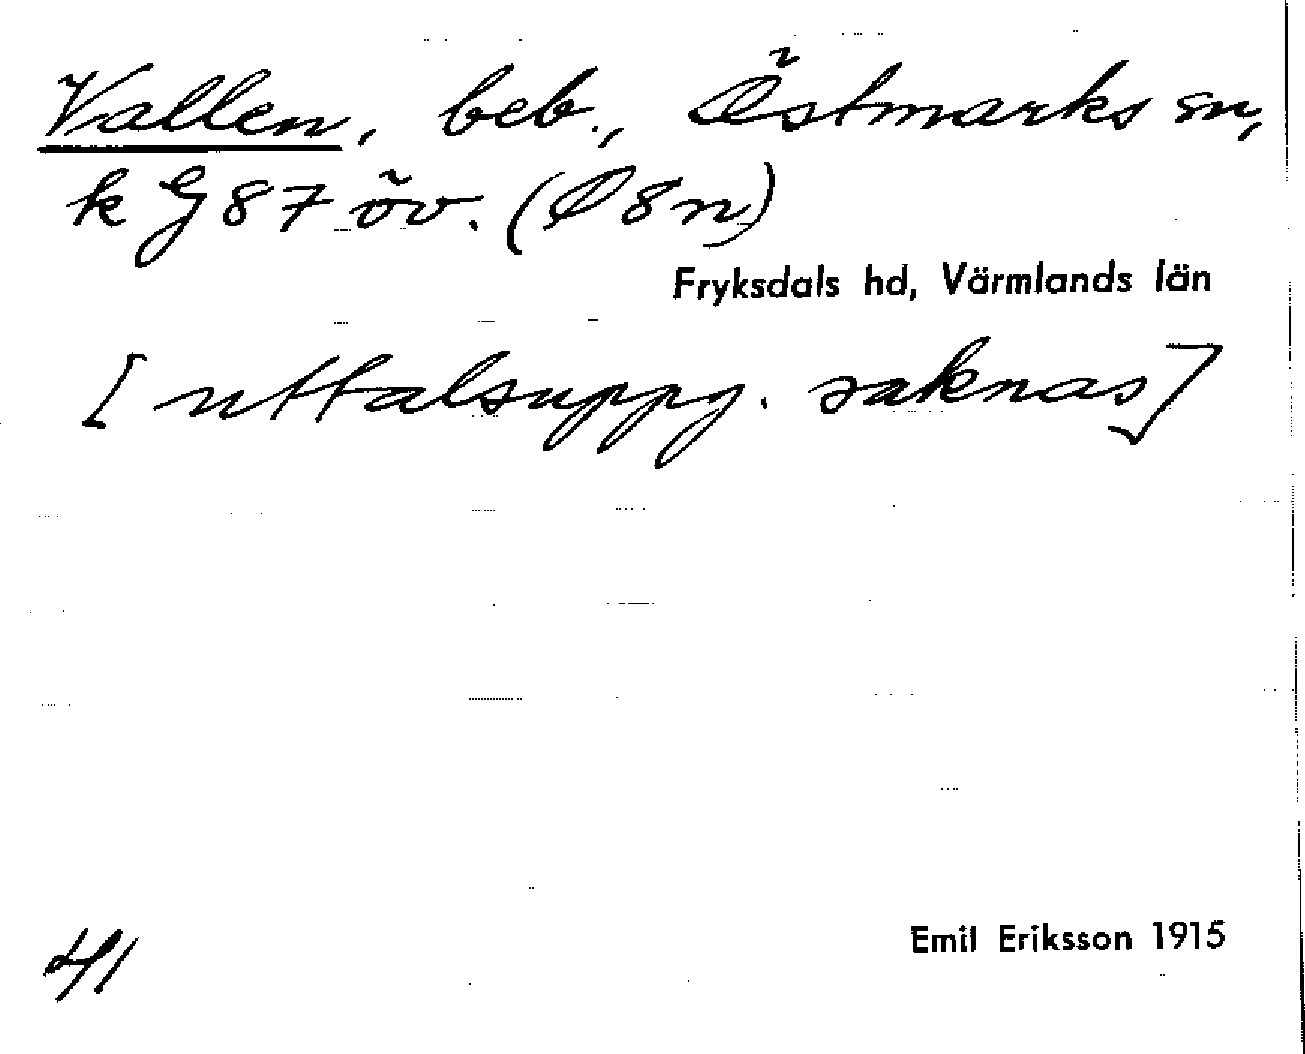 Vallen, beb., Östmarks sn,
k G 87 öv. (Ö 8 n)
Fryksdals hd, Värmlands län
[uttalsuppg. saknas]
41
Emil Eriksson 1915